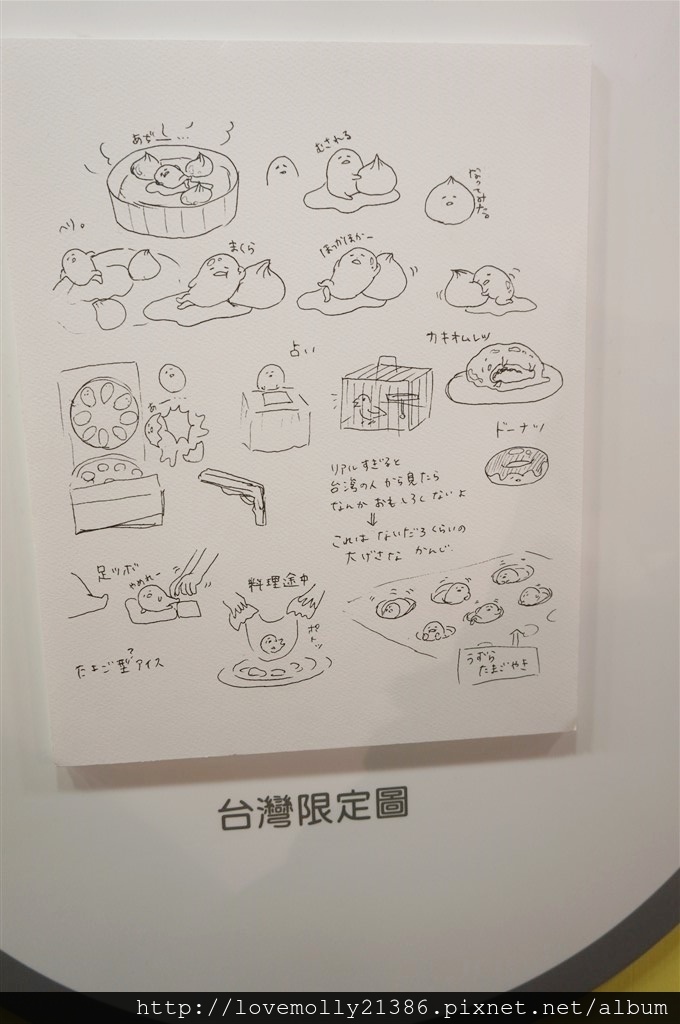 あぢ〜…
むされる
なってみた。
へり。
まくら
ほっかほかー
占い
カキオムレツ
あ
ドーナツ
リアルすぎると
台湾の人から見たら
なんかおもしろくないよ
⇓
これはないだろくらいの
大げさなかんじ。
足ツボ
やめれー
料理途中
ポトッ
たまご型?アイス
うずら
たまごやき
台灣限定圖
http://lovemolly21386.pixnet.net/album